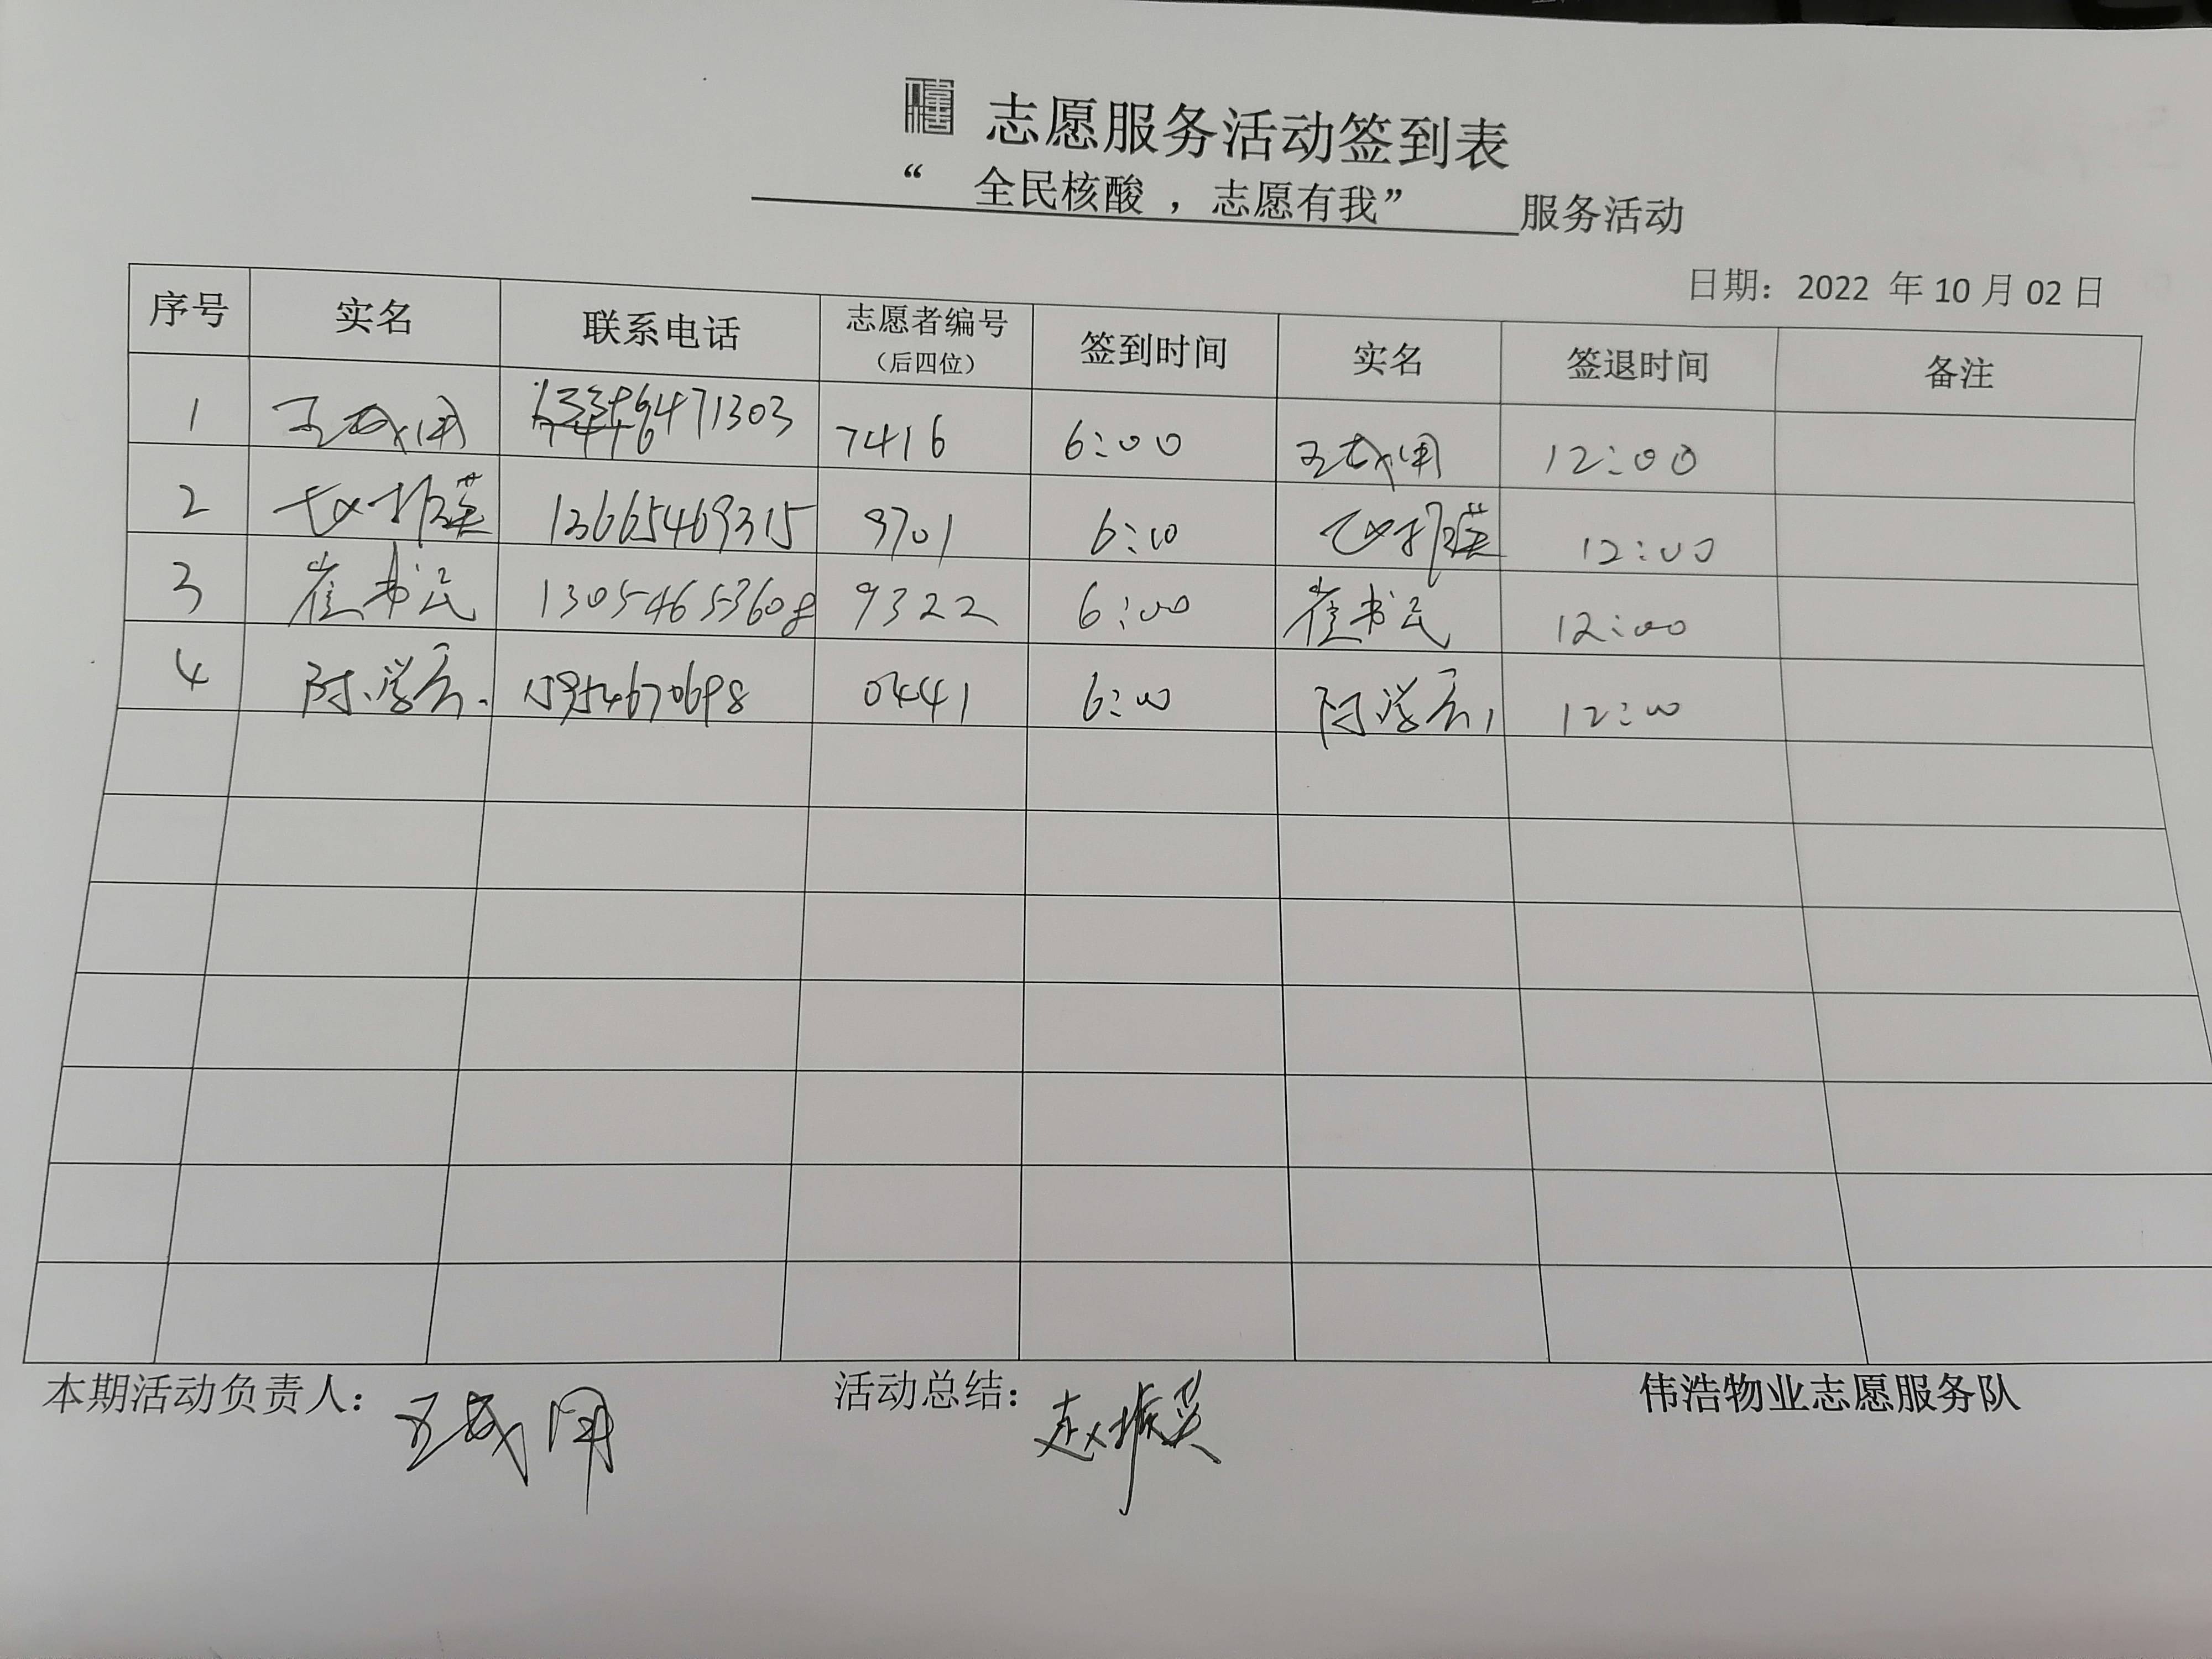 志愿服务活动签到表
“ 全民核酸 ，志愿有我” 服务活动
日期：2022 年 10 月 02 日
序号 实名 联系电话 志愿者编号（后四位） 签到时间 实名 签退时间 备注
1 7416 6:00 12:00
2 赵振英 13665469315 9701 6:00 赵振英 12:00
3 崔书民 13054653608 9322 6:00 崔书民 12:00
4 0441 6:00 12:00
本期活动负责人： 活动总结：赵振英 伟浩物业志愿服务队